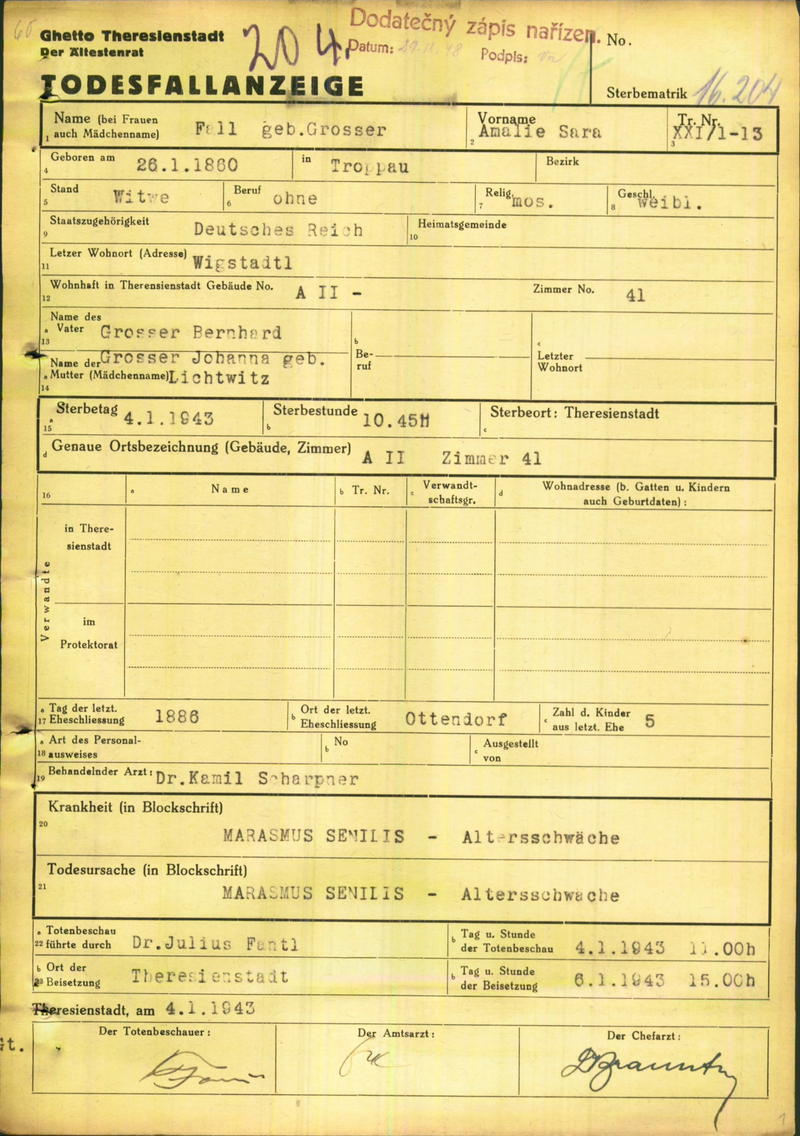 Ghetto Theresienstadt
Der Ältestenrat
TODESFALLANZEIGE
204
Dodatečný zápis nařízen.
Datum:
Podpis:
No.
Sterbematrik 16.204
Name (bei Frauen
1 auch Mädchenname) Fall geb.Grosser
Vorname
2 Amalie Sara
Tr. Nr.
3 XXI/1-13
4 Geboren am 26.1.1860 in Troppau Bezirk
5 Stand Witwe 6 Beruf ohne 7 Relig. mos. 8 Geschl. weibl.
9 Staatszugehörigkeit Deutsches Reich 10 Heimatsgemeinde
11 Letzer Wohnort (Adresse) Wigstadtl
12 Wohnhaft in Therensienstadt Gebäude No. A II - Zimmer No. 41
Name des
a Vater Grosser Bernhard
13
Name der Grosser Johanna geb.
a Mutter (Mädchenname) Lichtwitz
14
b
Be-
ruf
c
Letzter
Wohnort
a 15 Sterbetag 4.1.1943 b Sterbestunde 10.45H c Sterbeort: Theresienstadt
d Genaue Ortsbezeichnung (Gebäude, Zimmer) A II Zimmer 41
16 a Name b Tr. Nr. c Verwandt-
schaftsgr. d Wohnadresse (b. Gatten u. Kindern
auch Geburtdaten):
Verwandte
in There-
sienstadt
im
Protektorat
a Tag der letzt.
17 Eheschliessung 1886
b Ort der letzt.
Eheschliessung Ottendorf
c Zahl d. Kinder
aus letzt. Ehe 5
a Art des Personal-
18 ausweises
b No
c Ausgestellt
von
19 Behandelnder Arzt: Dr.Kamil Scharpner
Krankheit (in Blockschrift)
20
MARASMUS SENILIS - Altersschwäche
Todesursache (in Blockschrift)
21
MARASMUS SENILIS - Altersschwäche
a Totenbeschau
22 führte durch Dr.Julius Fantl
b Tag u. Stunde
der Totenbeschau 4.1.1943 11.00h
b Ort der
23 Beisetzung Theresienstadt
b Tag u. Stunde
der Beisetzung 6.1.1943 15.00h
Theresienstadt, am 4.1.1943
Der Totenbeschauer:
Der Amtsarzt:
Der Chefarzt: